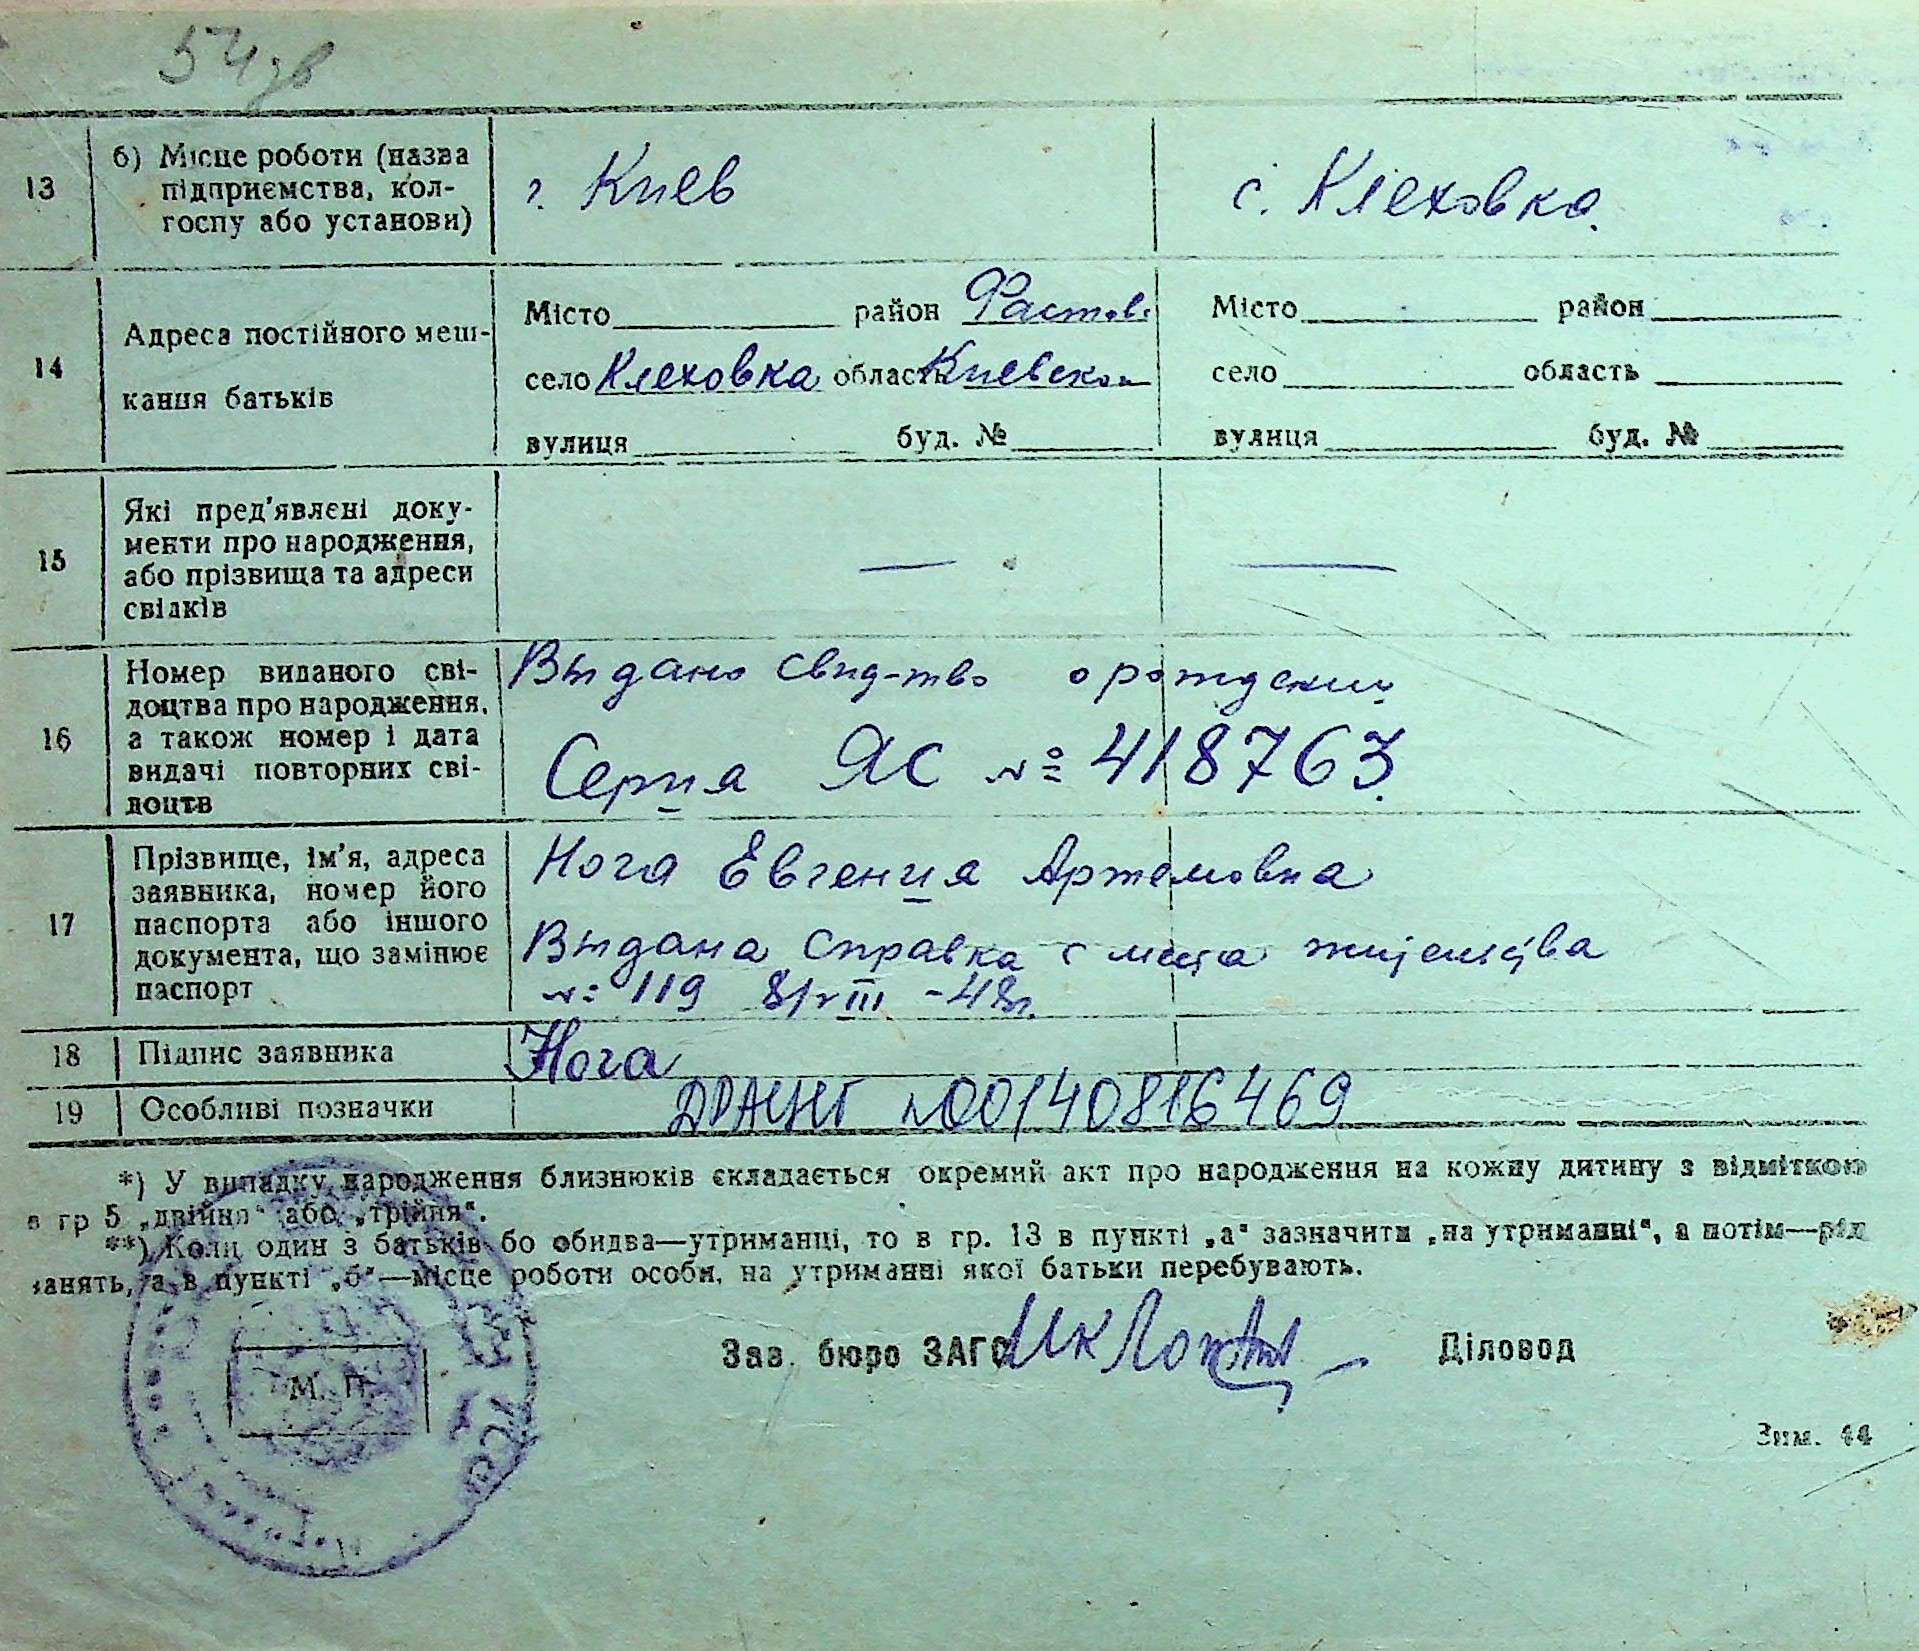 54 зв
13
б) Місце роботи (назва
підприємства, кол-
госпу або установи)
г. Киев
с. Клеховка.
14
Адреса постійного меш-
кання батьків
Місто район Фастов.
село Клеховка область Киевской
вулиця буд. №
Місто район
село область
вулиця буд. №
15
Які пред'явлені доку-
менти про народження,
або прізвища та адреси
свідків
— —
16
Номер виданого сві-
доцтва про народження,
а також номер і дата
видачі повторних сві-
доцтв
Выдано свид-тво о рождении
Серия ЯС № 418763.
17
Прізвище, ім'я, адреса
заявника, номер його
паспорта або іншого
документа, що замінює
паспорт
Нога Евгения Артемовна
Выдана справка с места жительства
№ 119 8/VIII -48г.
18
Підпис заявника
Нога
19
Особливі позначки
ДРАЦНГ №00140816469
*) У випадку народження близнюків складається окремий акт про народження на кожну дитину з відміткою
в гр 5 „двійня“ або „трійня“.
**) Коли один з батьків бо обидва—утриманці, то в гр. 13 в пункті „а“ зазначити „на утриманні“, а потім—рід
занять, а в пункті „б“—місце роботи особи, на утриманні якої батьки перебувають.
Зав. бюро ЗАГС
Діловод
М. П.
Зам. 44